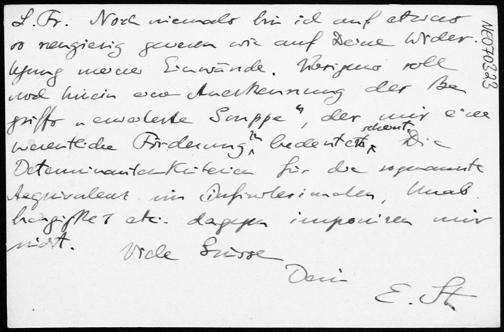 L. Fr. Noch niemals bin ich auf etwas
so neugierig gewesen wie auf Deine Wider-
legung meiner Einwände. Übrigens soll
noch hinein eine Anerkennung der Be
griffs „erweiterte Gruppe“, der mir eine
wesentliche Förderung zu bedeuten scheint. Die
Determinantenkriterien für die sogenannte
Aequivalenz im Infinitesimalen, Unab
hängigkeit etc. dagegen imponieren mir
nicht. Viele Grüsse
Dein
E. St.
NE070323